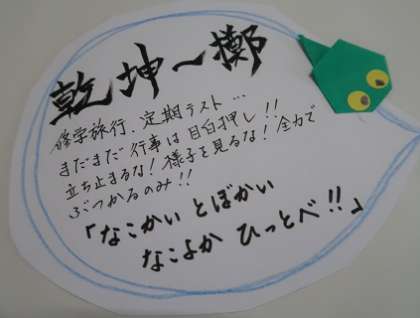 乾坤一擲
修学旅行、定期テスト…
まだまだ行事は目白押し!!
立ち止まるな!様子を見るな!全力で
ぶつかるのみ!!
「なこかい とぼかい
なこよか ひっとべ!!」